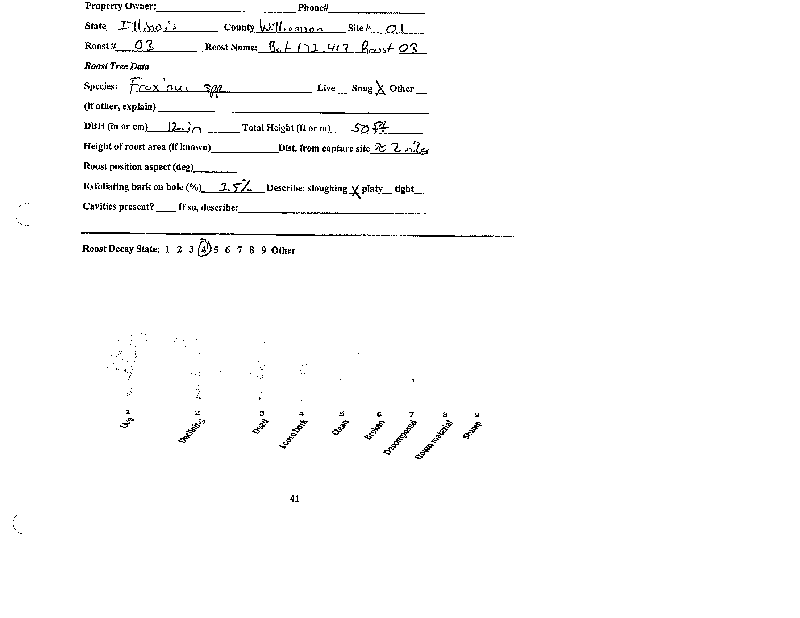 Property Owner: Phone#
State Illinois County Williamson Site # 01
Roost # 03 Roost Name: Bat 172.417 Roost 03
Roost Tree Data
Species: Fraxinus spp Live Snag X Other
(if other, explain)
DBH (in or cm) 12in Total Height (ft or m) 50ft
Height of roost area (if known) Dist. from capture site ≈ 2 miles
Roost position aspect (deg)
Exfoliating bark on bole (%) Describe: sloughing X platy tight
Cavities present? If so, describe:
Roost Decay State: 1 2 3 4 5 6 7 8 9 Other
1 2 3 4 5 6 7 8 9
Live Declining Dead Loose bark Clean Broken Decomposed Down material Stump
41